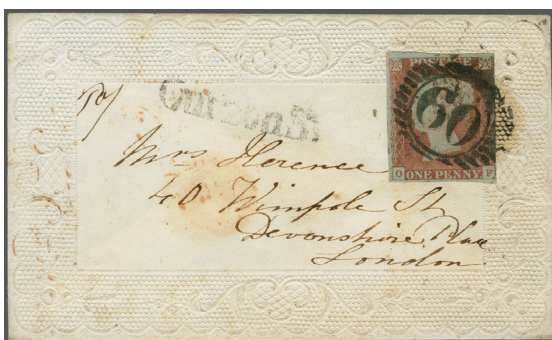 Curzon St
POSTAGE
60
O ONE PENNY. F
Mrs Florence
40 Wimpole St
Devonshire Place
London